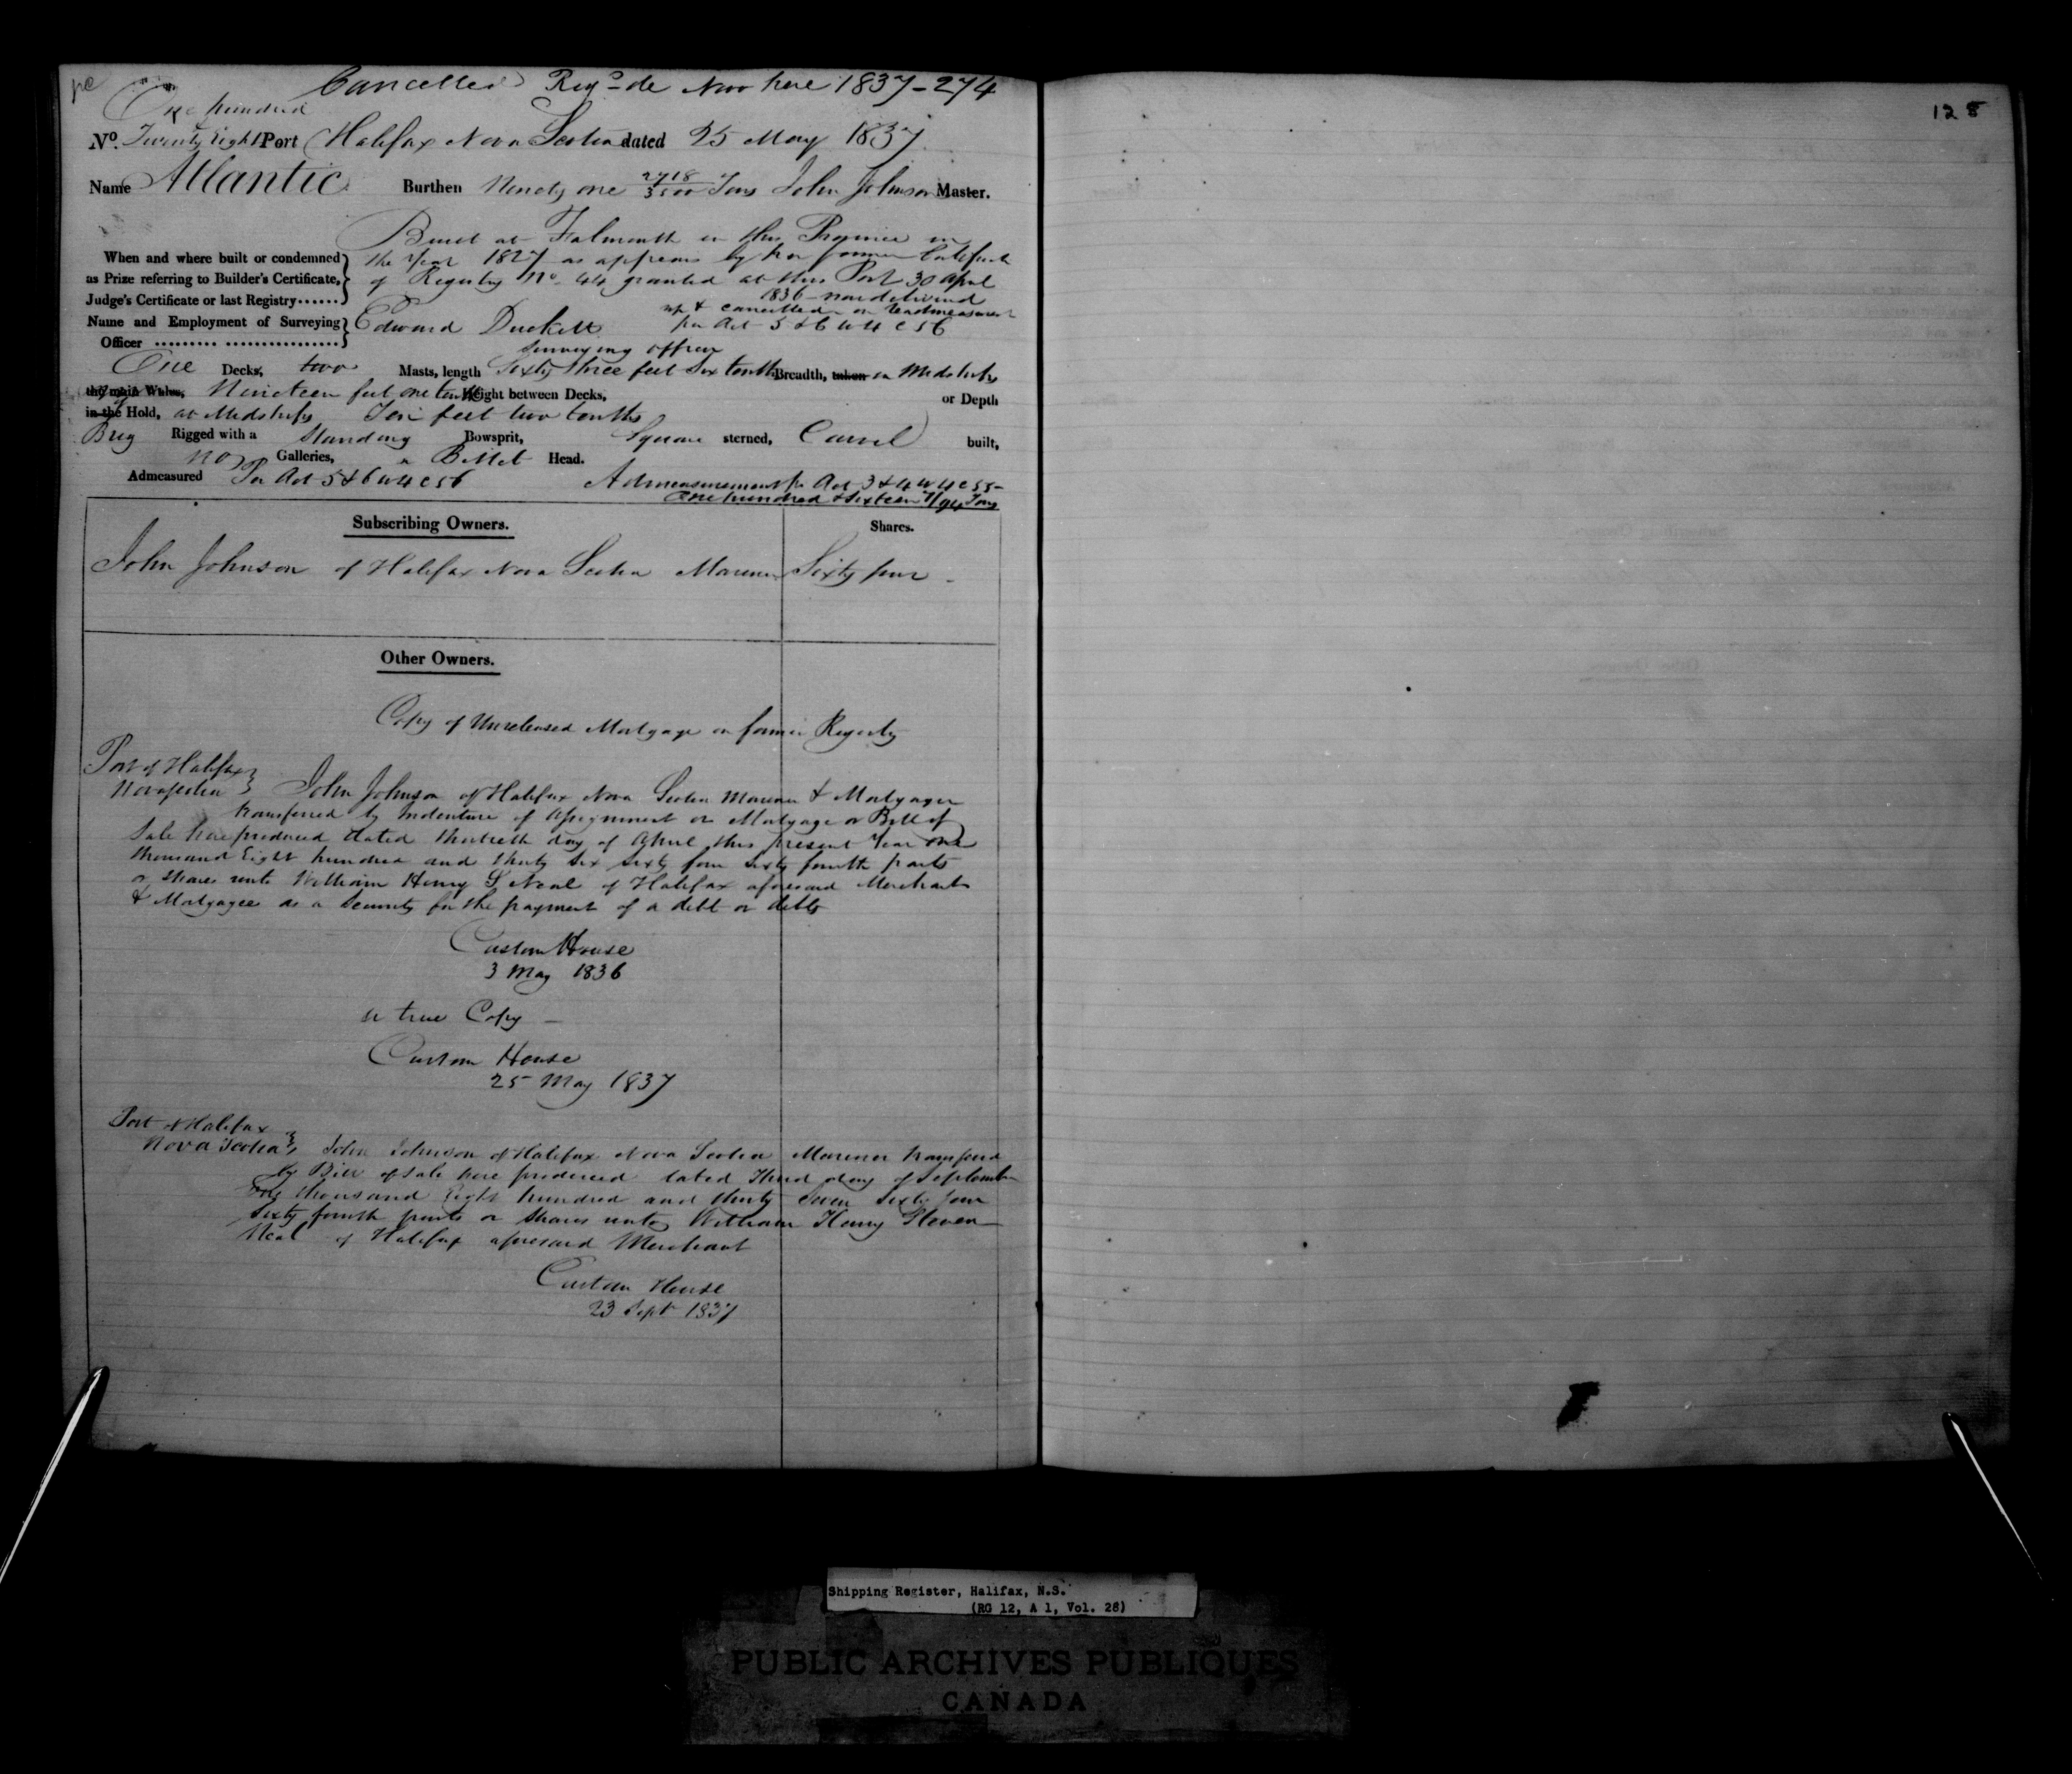 Cancelled Regd de Novo here 1837-274
One hundred
No. Twenty Eight Port Halifax Nova Scotia dated 25 May 1837
Name Atlantic Burthen Ninety one 2718/3500 Tons John Johnson Master.
Built at Falmouth in this Province in
the Year 1827 as appears by her former Certificate
of Registry No. 44 granted at this Port 30 April
1836 now delivered
up & cancelled on Readmeasurement
per Act 5 & 6 W 4 C 56
When and where built or condemned
as Prize referring to Builder's Certificate,
Judge's Certificate or last Registry......
Name and Employment of Surveying
Officer
Edward Duckett
Surveying officer
One Decks, two Masts, length Sixty three feet Six tenths Breadth, taken in Midships
the main Wales, Nineteen feet one tenth Height between Decks, or Depth
in the Hold, at Midships Ten feet two tenths
Brig Rigged with a Standing Bowsprit, Square sterned, Carvel built,
no Galleries, a Billet Head.
Admeasured Per Act 5 & 6 W 4 C 56 Admeasurement pr Act 3 & 4 W 4 C 55-
One hundred & Sixteen 7/94 Tons
Subscribing Owners. Shares.
John Johnson of Halifax Nova Scotia Mariner Sixty four -
Other Owners.
Copy of Unreleased Mortgage on former Registry
Port of Halifax
Nova Scotia John Johnson of Halifax Nova Scotia Mariner & Mortgager
transferred by Indenture of Assignment or Mortgage or Bill of
Sale here produced dated thirtieth day of April this present Year one
thousand Eight hundred and thirty six sixty four sixty fourth parts
or shares unto William Henry S Neal of Halifax aforesaid Merchant
& Mortgagee as a security for the payment of a debt or debts
Custom House
3 May 1836
a true Copy -
Custom House
25 May 1837
Port of Halifax
Nova Scotia John Johnson of Halifax Nova Scotia Mariner transferred
by Bill of sale here produced dated Third day of September
One thousand Eight hundred and thirty Seven Sixty four
Sixty fourth parts or shares unto William Henry Steven
Neal of Halifax aforesaid Merchant
Custom House
23 Sept 1837
128
Shipping Register, Halifax, N.S.
(RG 12, A 1, Vol. 28)
PUBLIC ARCHIVES PUBLIQUES
CANADA